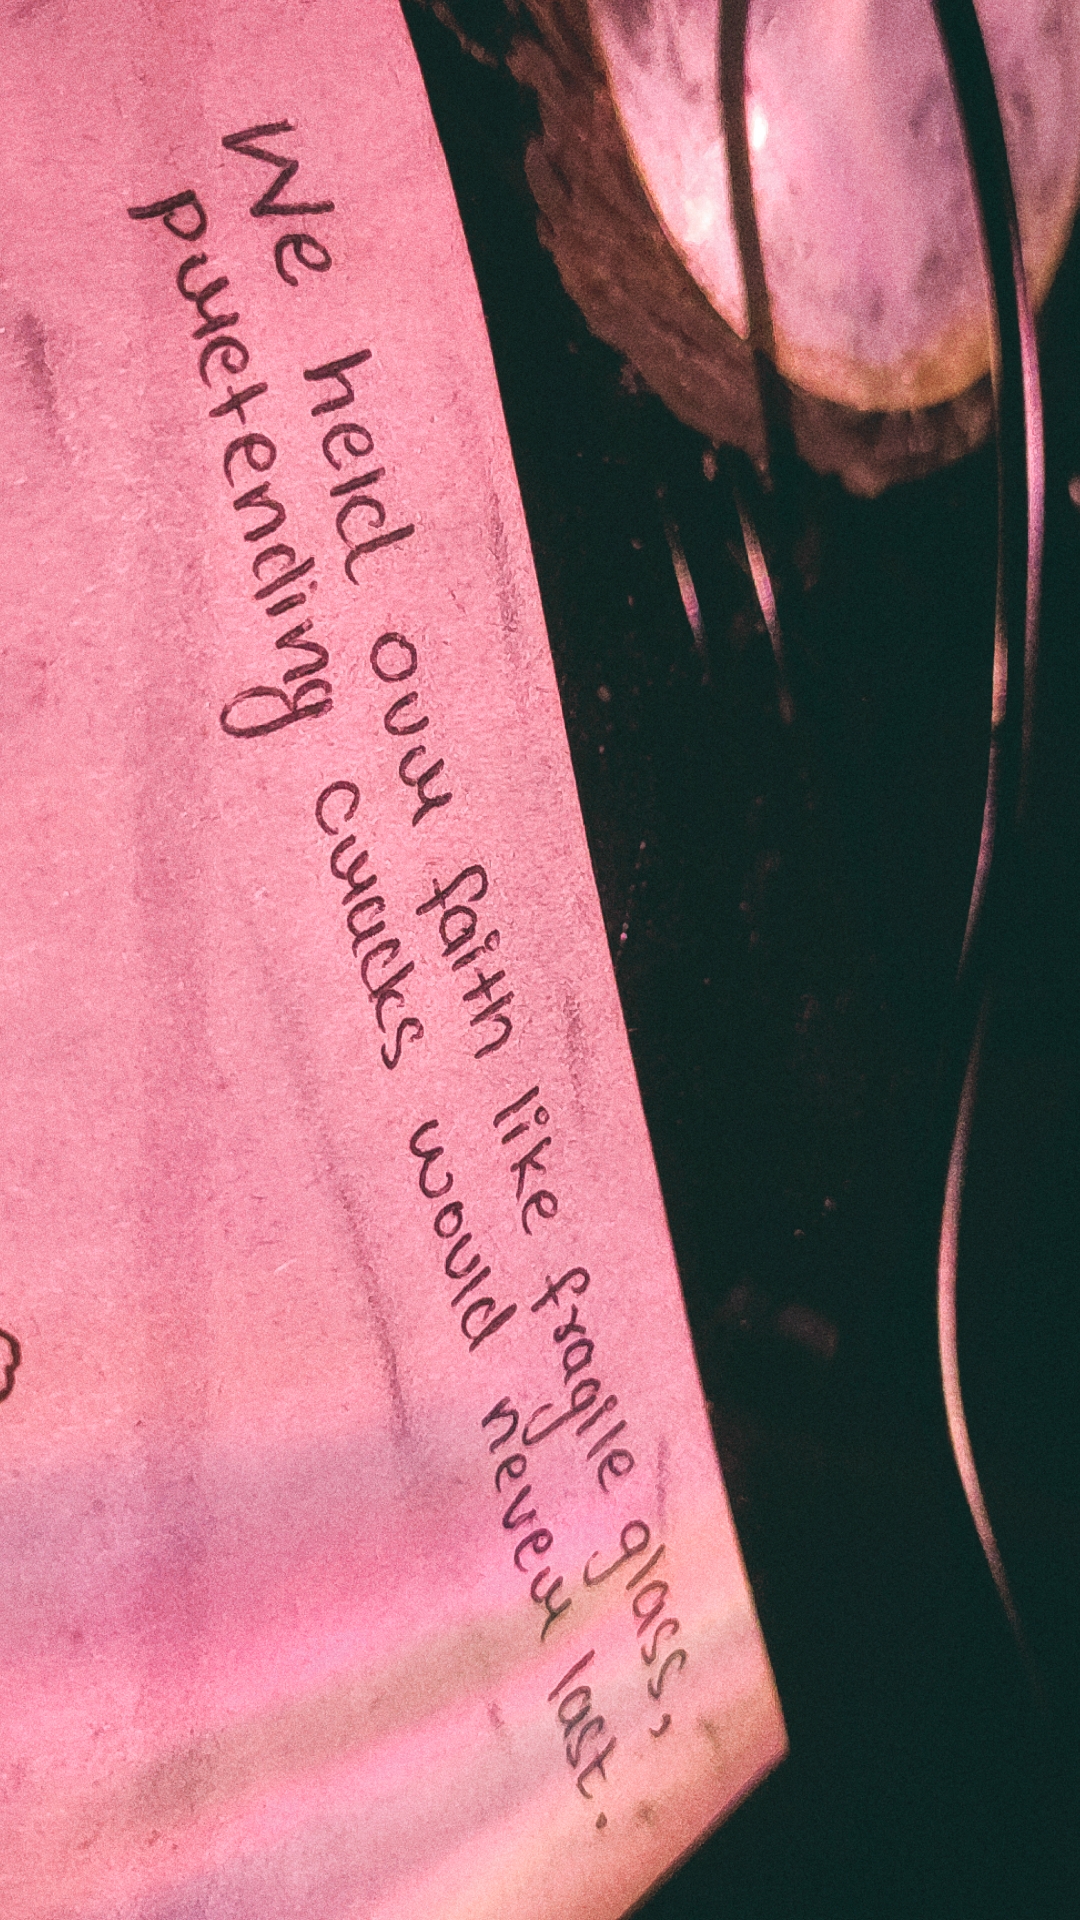 We held our faith like fragile glass,
pretending cracks would never last.